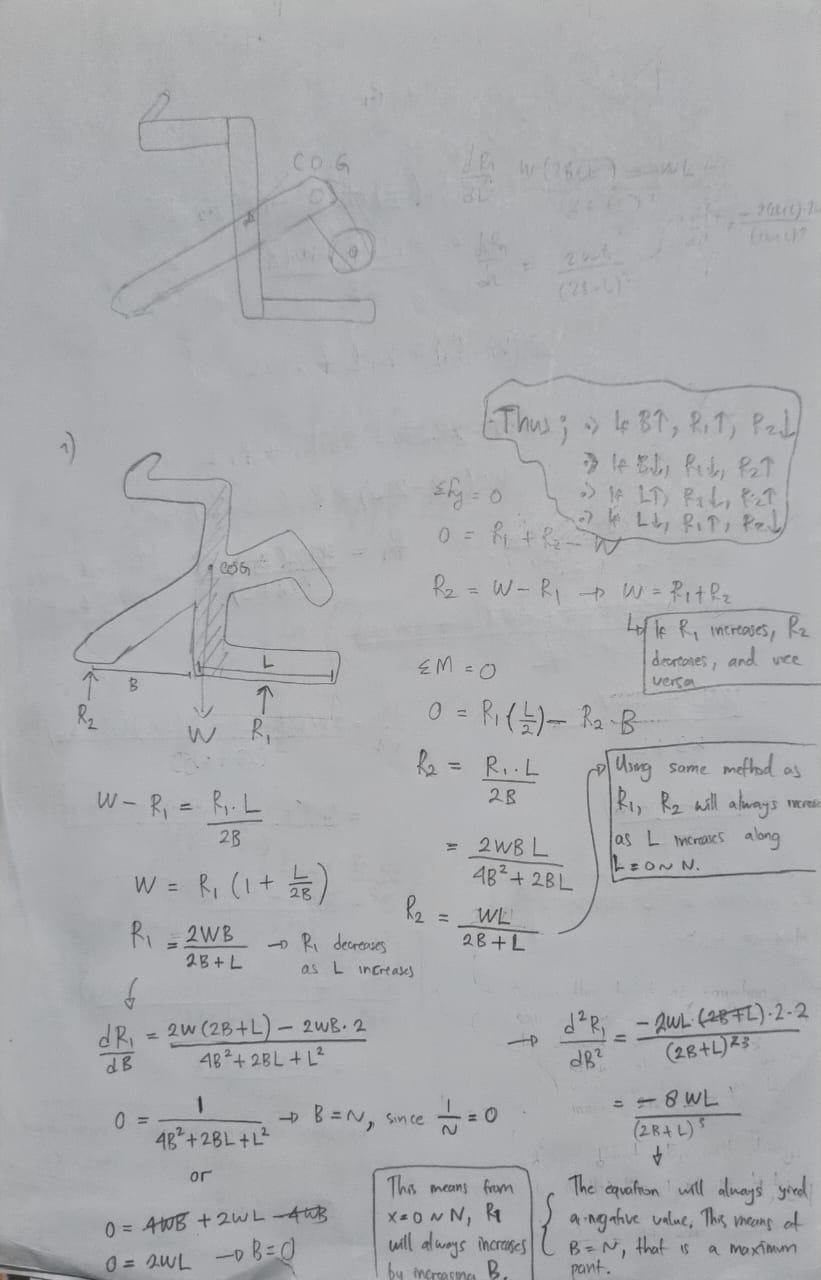 C O G
W
dR₁
dL
W(2B+L) - WL
2WB
(2B+L)²
Thus ; => If B↑, R₁↑, R₂↓
=> If B↓, R₁↓, R₂↑
=> If L↑, R₁↓, R₂↑
=> If L↓, R₁↑, R₂↓
1)
COG
B
L
R₂
W
R₁
ΣFy = 0
0 = R₁ + R₂ - W
R₂ = W - R₁ → W = R₁ + R₂
↳ If R₁ increases, R₂
decreases, and vice
versa
ΣM = 0
0 = R₁ (L/2) - R₂ · B
R₂ = R₁ . L / 2B
= 2WB L / 4B² + 2BL
R₂ = WL / 2B + L
→ Using same method as
R₁, R₂ will always increase
as L increases along
L = 0 ~ N.
W - R₁ = R₁ . L / 2B
W = R₁ (1 + L/2B)
R₁ = 2WB / 2B + L → R₁ decreases
as L increases
dR₁/dB = 2W (2B+L) - 2WB · 2 / 4B² + 2BL + L²
0 = 1 / 4B² + 2BL + L² → B = N, since 1/N = 0
or
0 = 4WB + 2WL - 4WB
0 = 2WL → B = 0
→ d²R₁/dB² = -2WL · (2B+L) · 2 · 2 / (2B+L)²³
= - 8 WL / (2B + L)³
This means from
x = 0 ~ N, R₁
will always increases
by increasing B.
The equation will always yield
a negative value. This means at
B = N, that is a maximum
point.